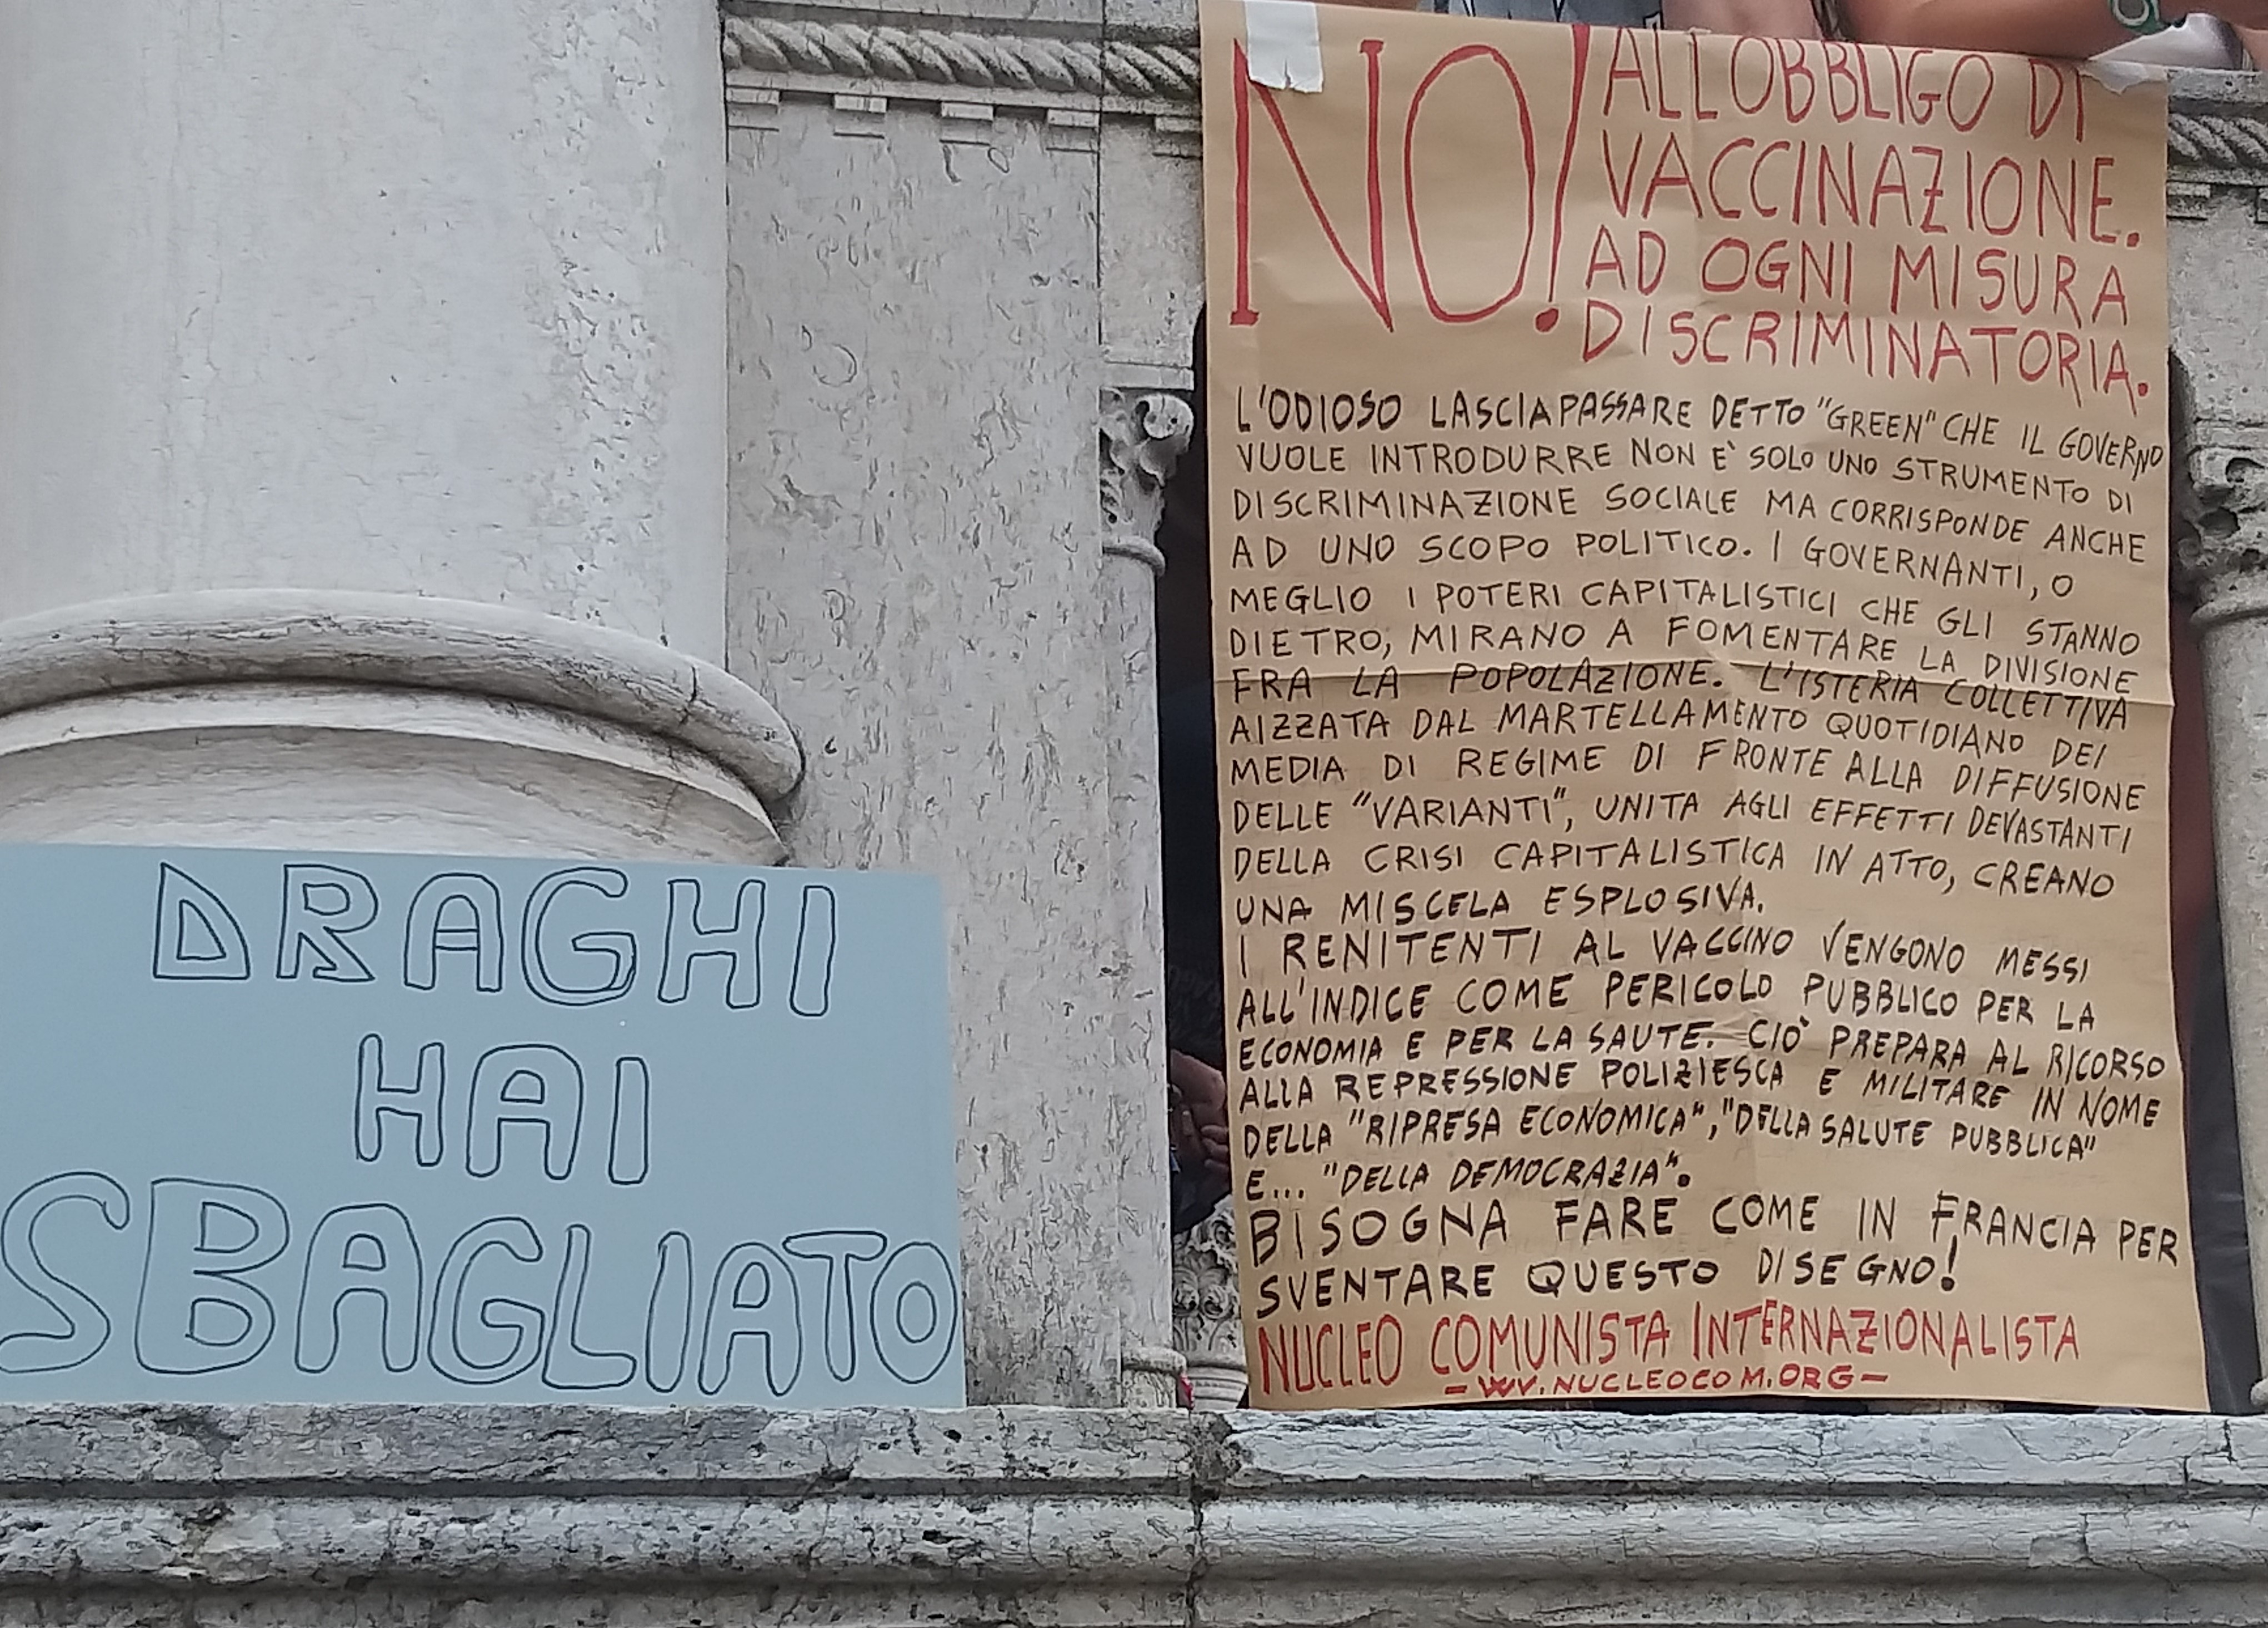 DRAGHI
HAI
SBAGLIATO
NO! ALL'OBBLIGO DI
VACCINAZIONE.
AD OGNI MISURA
DISCRIMINATORIA.
L'ODIOSO LASCIAPASSARE DETTO "GREEN" CHE IL GOVERNO
VUOLE INTRODURRE NON E' SOLO UNO STRUMENTO DI
DISCRIMINAZIONE SOCIALE MA CORRISPONDE ANCHE
AD UNO SCOPO POLITICO. I GOVERNANTI, O
MEGLIO I POTERI CAPITALISTICI CHE GLI STANNO
DIETRO, MIRANO A FOMENTARE LA DIVISIONE
FRA LA POPOLAZIONE. L'ISTERIA COLLETTIVA
AIZZATA DAL MARTELLAMENTO QUOTIDIANO DEI
MEDIA DI REGIME DI FRONTE ALLA DIFFUSIONE
DELLE "VARIANTI", UNITA AGLI EFFETTI DEVASTANTI
DELLA CRISI CAPITALISTICA IN ATTO, CREANO
UNA MISCELA ESPLOSIVA.
I RENITENTI AL VACCINO VENGONO MESSI
ALL'INDICE COME PERICOLO PUBBLICO PER LA
ECONOMIA E PER LA SAUTE. CIÒ PREPARA AL RICORSO
ALLA REPRESSIONE POLIZIESCA E MILITARE IN NOME
DELLA "RIPRESA ECONOMICA", "DELLA SALUTE PUBBLICA"
E... "DELLA DEMOCRAZIA".
BISOGNA FARE COME IN FRANCIA PER
SVENTARE QUESTO DISEGNO!
NUCLEO COMUNISTA INTERNAZIONALISTA
- WW.NUCLEOCOM.ORG -